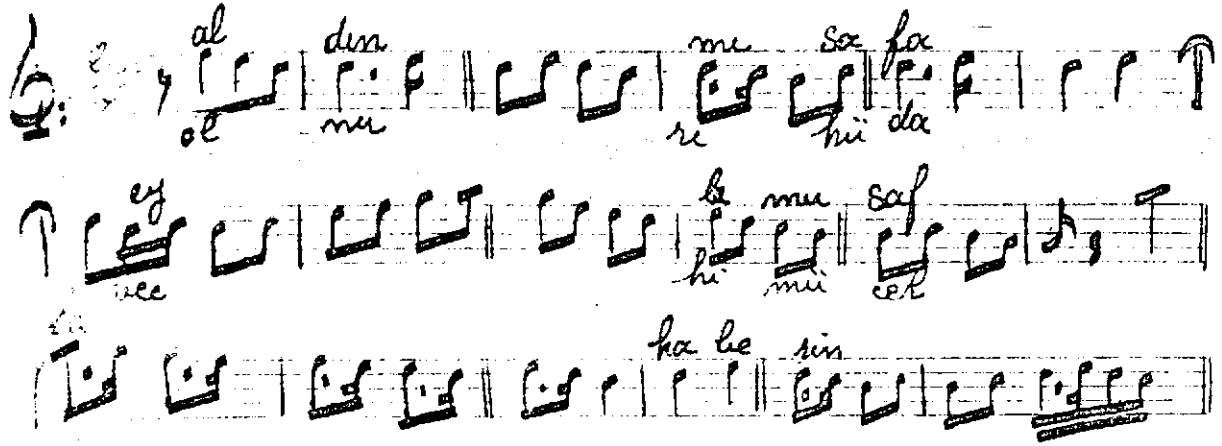 al din mi sa fa
ol nu ri hü da
ey le mu saf
vec hi mü cel
ka be sin